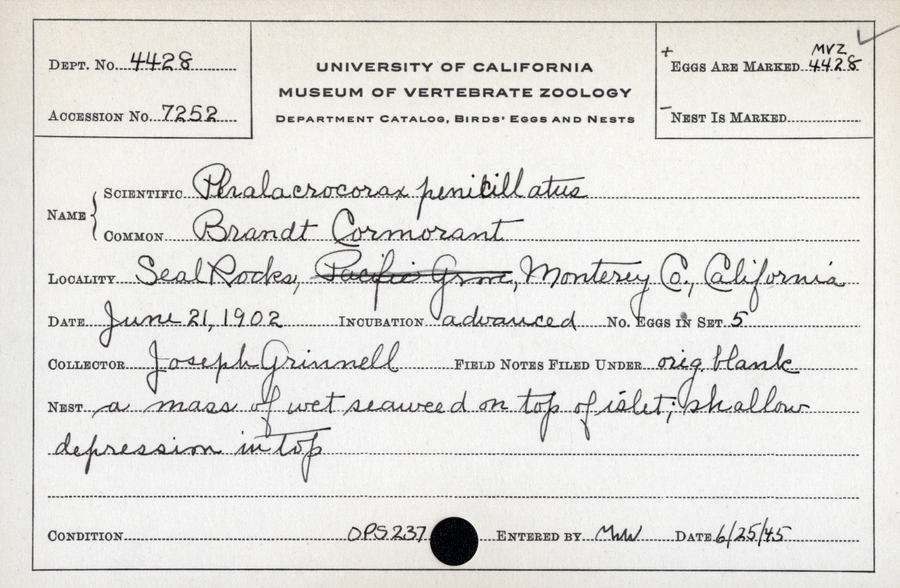 DEPT. NO. 4428
ACCESSION NO. 7252
UNIVERSITY OF CALIFORNIA
MUSEUM OF VERTEBRATE ZOOLOGY
DEPARTMENT CATALOG, BIRDS' EGGS AND NESTS
+ EGGS ARE MARKED MVZ 4428
- NEST IS MARKED
NAME
SCIENTIFIC Phalacrocorax penicillatus
COMMON Brandt Cormorant
LOCALITY Seal Rocks, Pacific Grove, Monterey Co., California
DATE June 21, 1902 INCUBATION advanced NO. EGGS IN SET 5
COLLECTOR Joseph Grinnell FIELD NOTES FILED UNDER orig. blank
NEST a mass of wet seaweed on top of islet; shallow
depression in top
CONDITION OPS237 ENTERED BY MW DATE 6/25/45